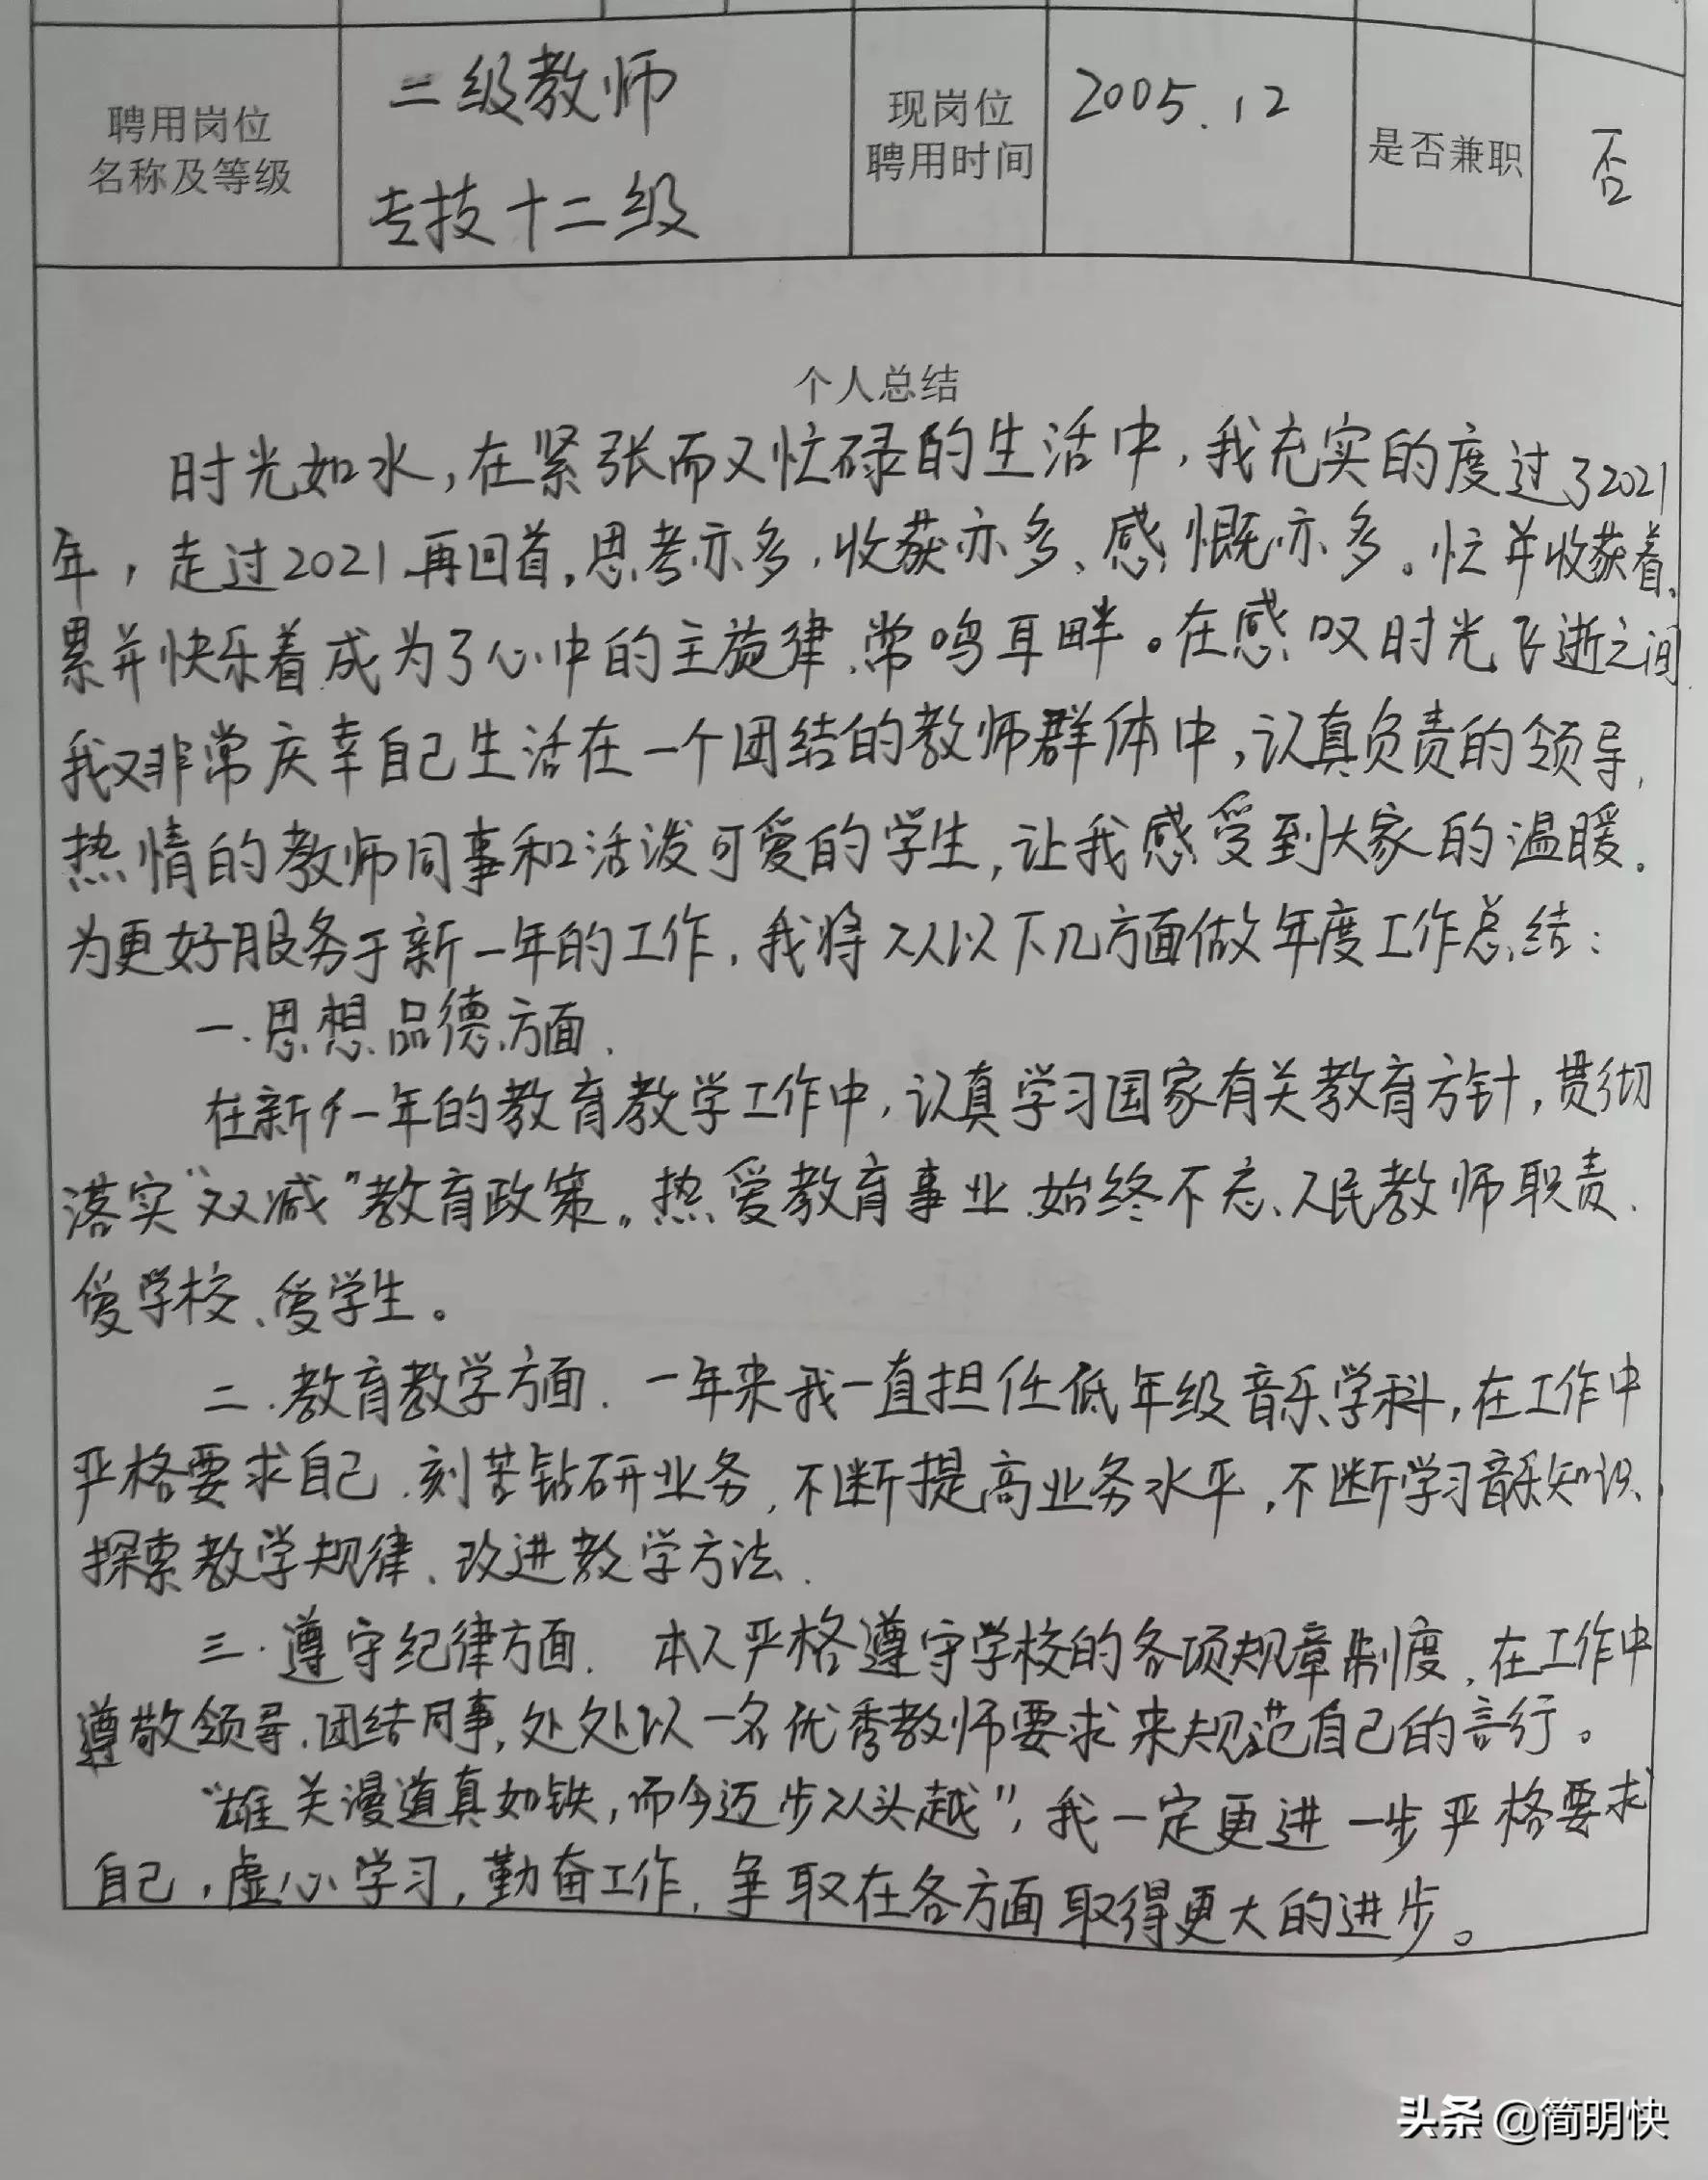 聘用岗位
名称及等级
二级教师
专技十二级
现岗位
聘用时间
2005.12
是否兼职
否
个人总结
时光如水,在紧张而又忙碌的生活中,我充实的度过了2021
年,走过2021再回首,思考亦多,收获亦多、感慨亦多。忙并收获着、
累并快乐着成为了心中的主旋律、常鸣耳畔。在感叹时光飞逝之间
我又非常庆幸自己生活在一个团结的教师群体中,认真负责的领导,
热情的教师同事和活泼可爱的学生,让我感受到大家的温暖。
为更好服务于新一年的工作,我将从以下几方面做年度工作总结:
一.思想品德方面.
在新的一年的教育教学工作中,认真学习国家有关教育方针,贯彻
落实“双减”教育政策。热爱教育事业.始终不忘人民教师职责、
爱学校、爱学生。
二.教育教学方面. 一年来我一直担任低年级音乐学科,在工作中
严格要求自己.刻苦钻研业务,不断提高业务水平,不断学习音乐知识、
探索教学规律、改进教学方法.
三.遵守纪律方面. 本人严格遵守学校的各项规章制度,在工作中
尊敬领导.团结同事,处处以一名优秀教师要求来规范自己的言行。
“雄关漫道真如铁,而今迈步从头越”,我一定更进一步严格要求
自己,虚心学习,勤奋工作,争取在各方面取得更大的进步。
头条 @简明快